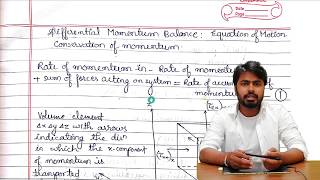 Date
Page
Differential Momentum Balance: Equation of Motion
Conservation of momentum
Rate of momentum in - Rate of momen
+ sum of forces acting on system = Rate of accu of
momentum — ①
Volume element
Δx Δy Δz with arrows
indicating the dir
in which the x-component
of momentum is
transported